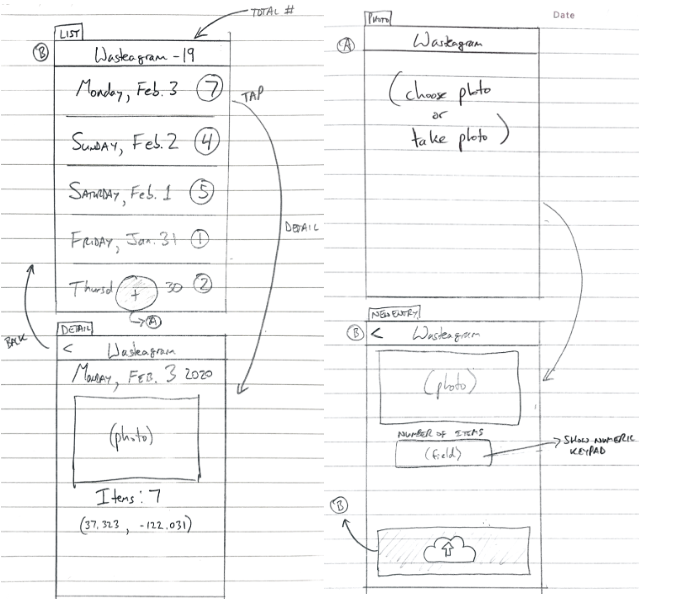 TOTAL #
LIST
B
Wasteagram - 19
Monday, Feb. 3 7
TAP
SUNDAY, Feb. 2 4
SATURDAY, Feb. 1 5
DETAIL
FRIDAY, Jan. 31 1
Thursd + 30 2
A
BACK
DETAIL
< Wasteagram
MONDAY, FEB. 3 2020
(photo)
Items: 7
(37.323, -122.031)
Date
PHOTO
A
Wasteagram
(choose photo
or
take photo)
NEW ENTRY
B
< Wasteagram
(photo)
NUMBER OF ITEMS
(field)
SHOW NUMERIC
KEYPAD
B